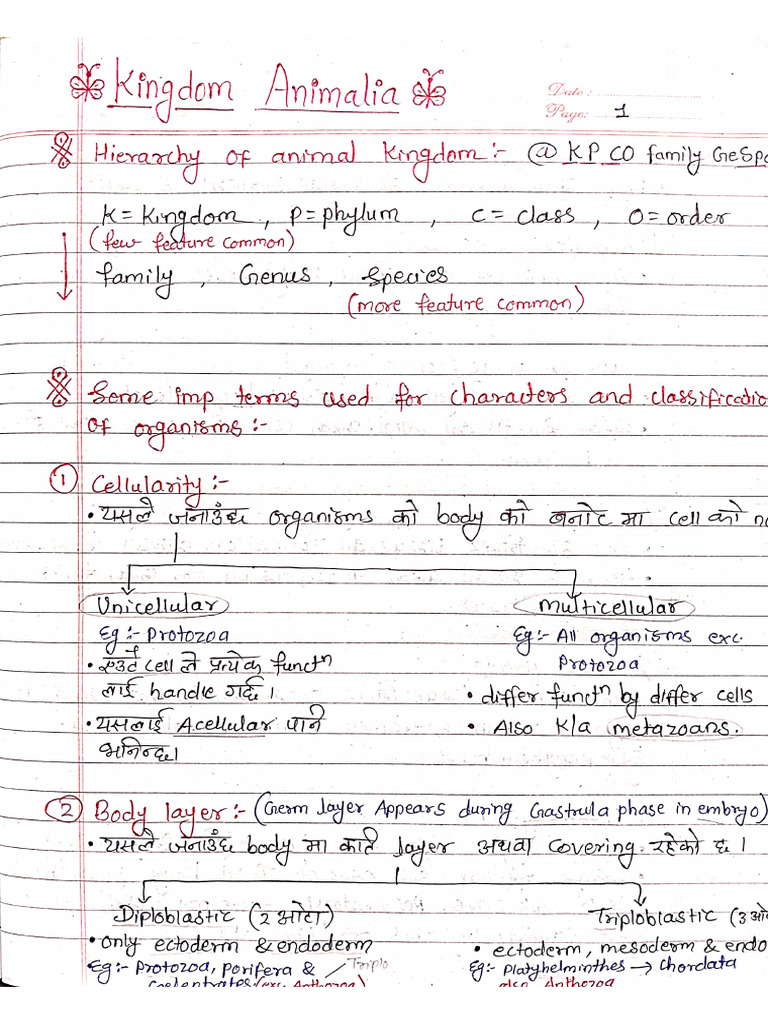 Kingdom Animalia
Date:
Page: 1
Hierarchy of animal kingdom:- @ KP CO family GeSp
K= Kingdom, P= phylum, C= class, O= order
(few feature common)
family, Genus, species
(more feature common)
Some imp terms used for characters and classificatio
of organisms:-
① Cellularity:-
• यसले जनाउँछ organisms को body को बनोट मा cell को
Unicellular Multicellular
Eg:- Protozoa Eg:- All organisms exc.
Protozoa
• एउटै cell ले प्रत्येक functn
लाई handle गर्छ। • differ functn by differ cells
• यसलाई Acellular पनि • Also K/a metazoans.
भनिन्छ।
② Body layer:- (Germ layer Appears during Gastrula phase in embryo)
• यसले जनाउँछ body मा कति layer अथवा covering रहेको छ।
Diploblastic (2 ओटा) Triploblastic (3 ओ
• only ectoderm & endoderm • ectoderm, mesoderm & endo
Eg:- Protozoa, porifera & Triplo Eg:- Platyhelminthes → Chordata
also Anthozoa